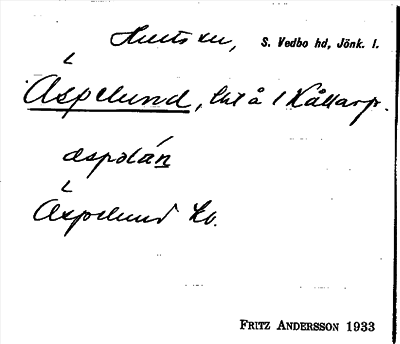 Hults sn, S. Vedbo hd, Jönk. l.
Äspelund, lht å 1 Källarp.
äspəlán
Äspelund Ek.
FRITZ ANDERSSON 1933